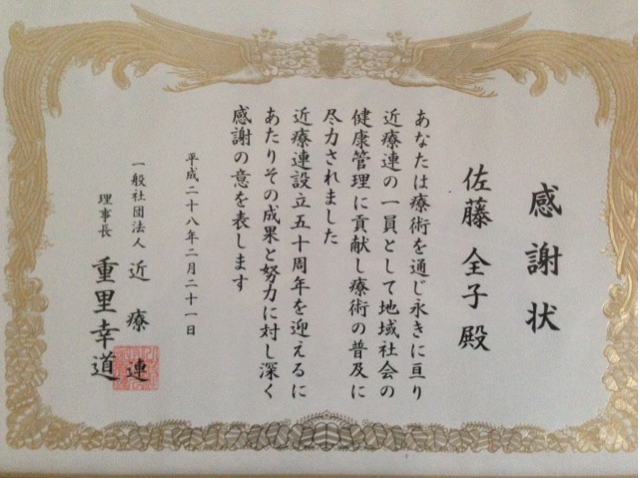 感謝状
佐藤全子殿
あなたは療術を通じ永きに亘り
近療連の一員として地域社会の
健康管理に貢献し療術の普及に
尽力されました
近療連設立五十周年を迎えるに
あたりその成果と努力に対し深く
感謝の意を表します
平成二十八年二月二十一日
一般社団法人 近療連
理事長 重里幸道